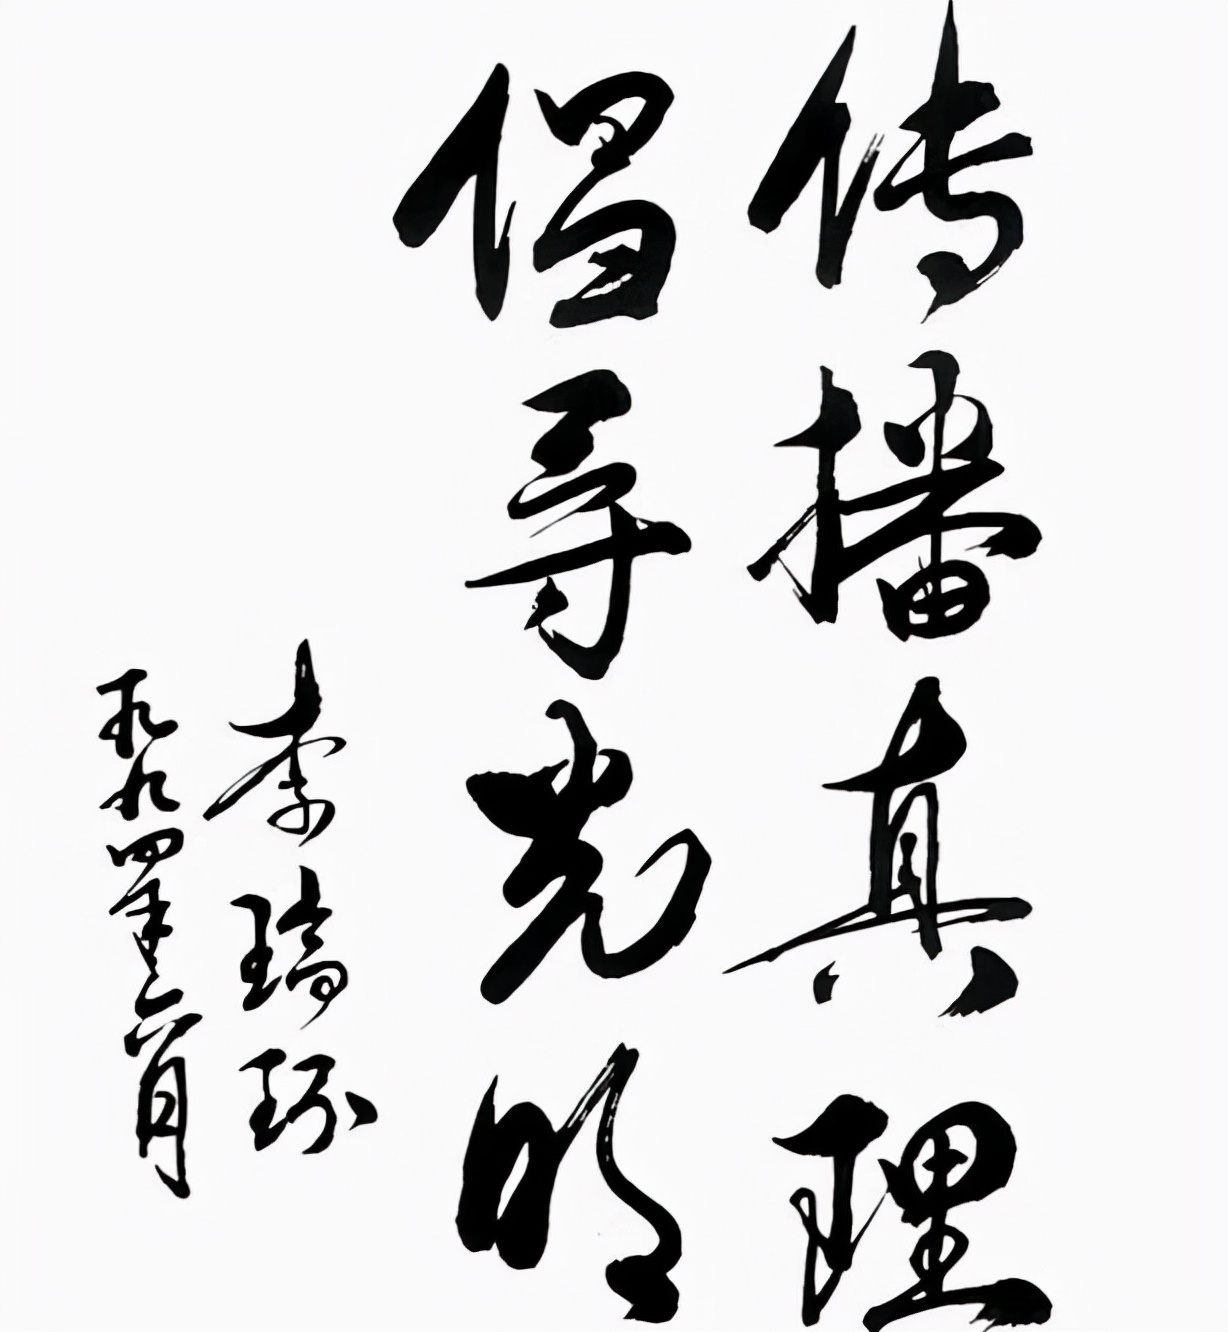 传播真理
倡导光明
李瑞环
一九九四年六月